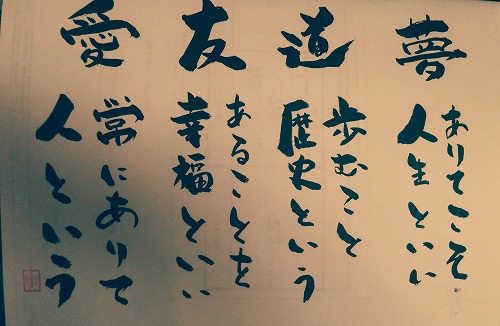 夢
ありてこそ
人生といい
道
歩むこと
歴史という
友
あることを
幸福といい
愛
常にありて
人という